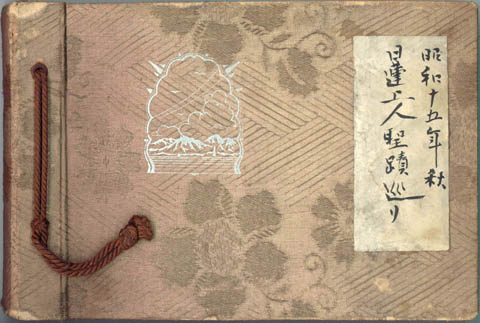 昭和十五年秋
日蓮上人聖蹟巡り